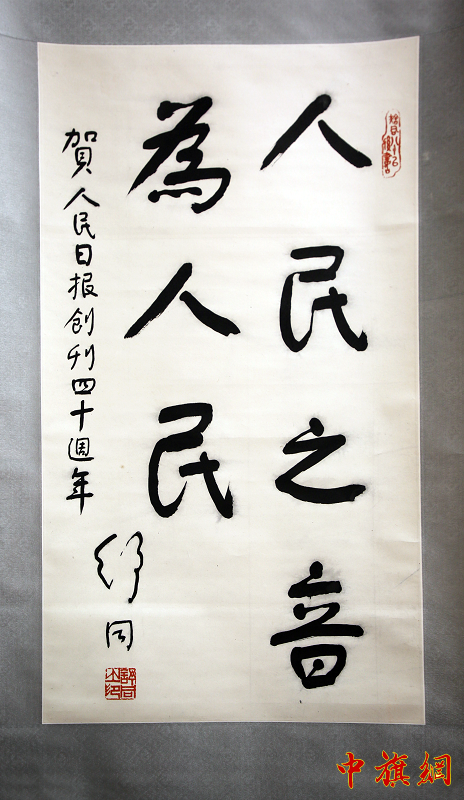 人民之音
為人民
賀人民日报創刊四十週年
舒同
中旗網